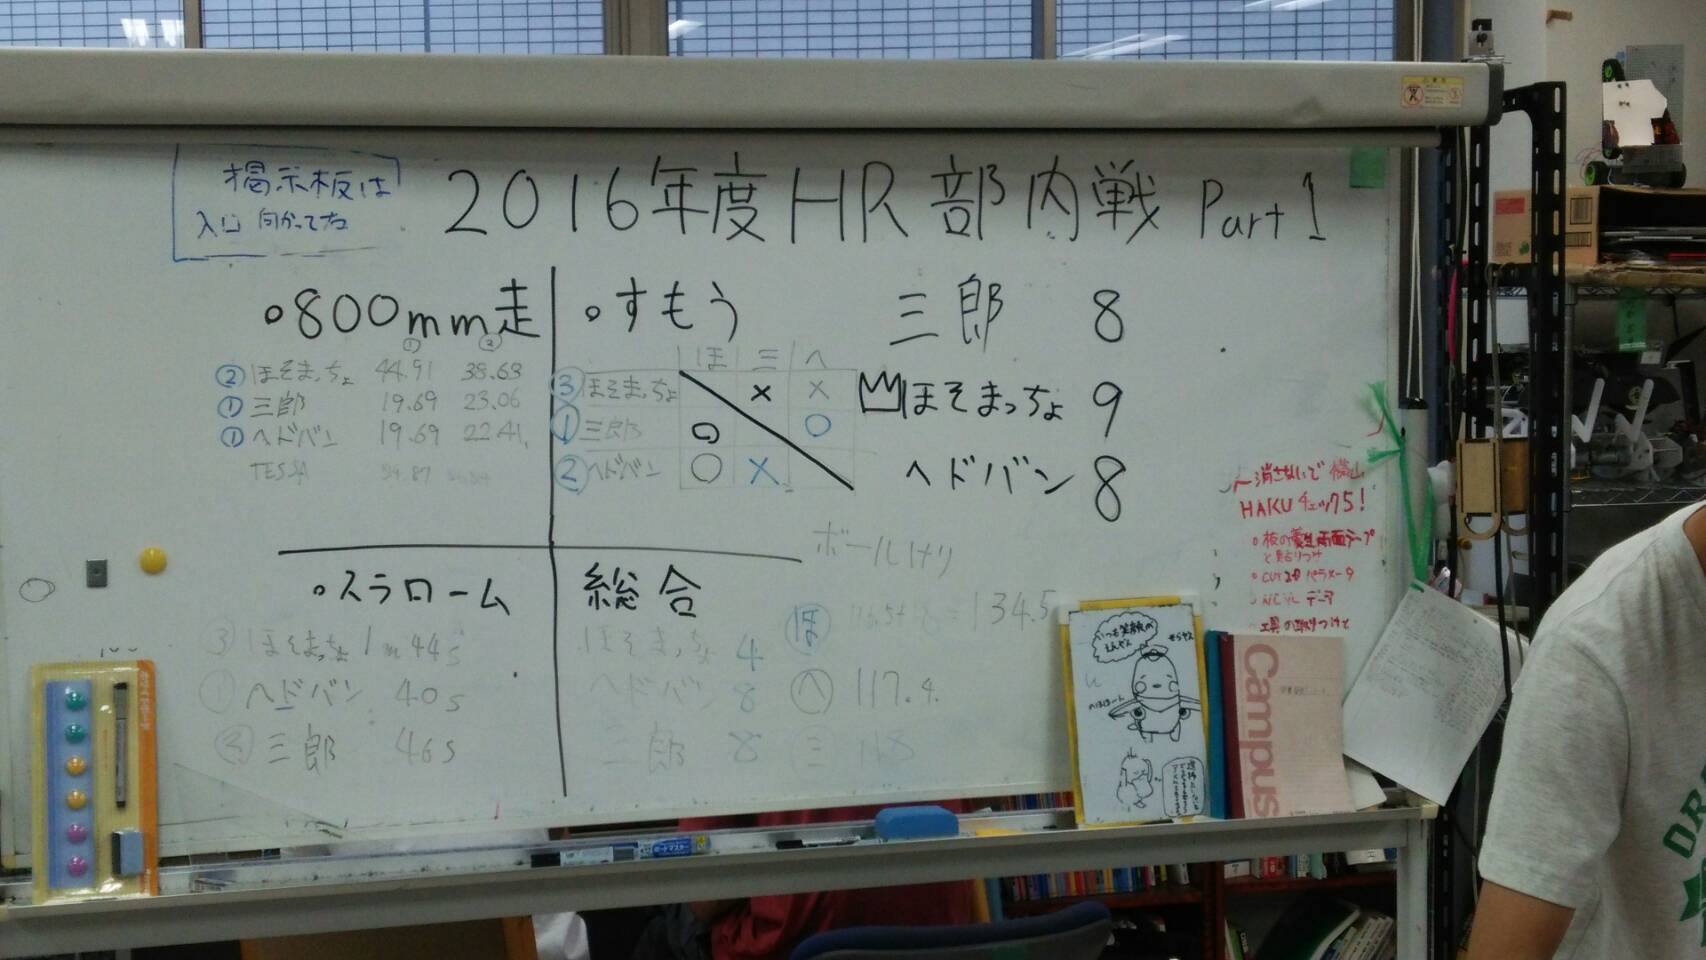 掲示板は
入口 向かって右
2016年度HR部内戦 Part 1
○800mm走
① ②
② ほそまっちょ 44.91 38.63
① 三郎 19.69 23.06
① ヘドバン 19.69 22.41
TESSA
○すもう
ほ 三 へ
③ ほそまっちょ × ×
① 三郎 ○ ○
② ヘドバン ○ ×
三郎 8
ほそまっちょ 9
ヘドバン 8
○スラローム
③ ほそまっちょ 1m44s
① ヘドバン 40s
② 三郎 46s
総合
ほそまっちょ 4
ヘドバン 8
三郎 8
ボールけり
ほ 134.5
へ 117.4
三 118
消さないで
HAKUチェック5!
○板の養生両面テープ
と貼りつけ
○CUT2D パラメータ
データ
工具の取りつけと
いつも笑顔の
Campus